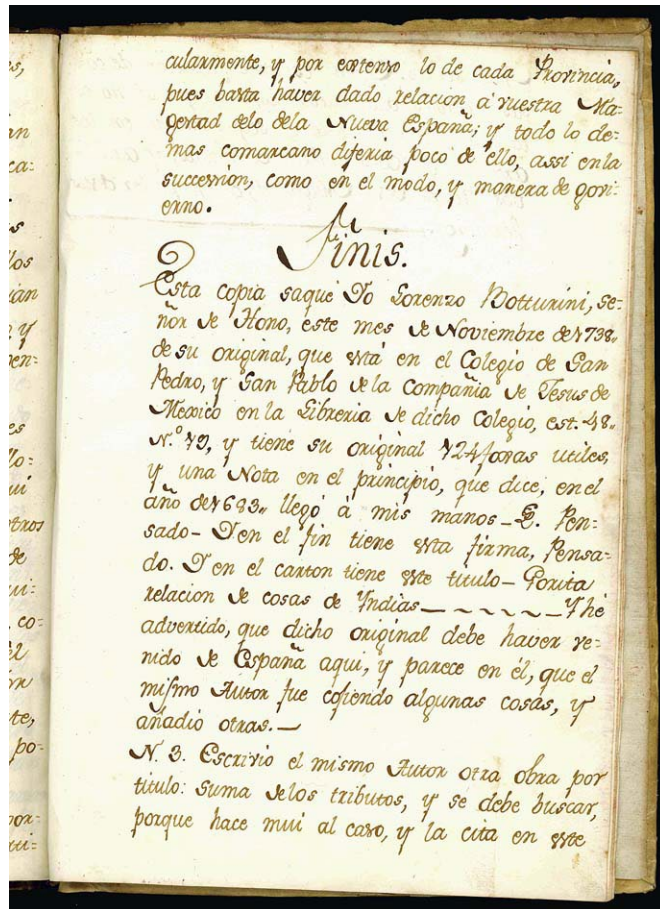 cularmente, y por extenso lo de cada Provincia,
pues basta haver dado relacion á vuestra Ma=
gestad delo dela Nueva España; y todo lo de=
mas comarcano diferia poco de ello, assi en la
succession, como en el modo, y manera de govi=
erno.
Finis.
Esta copia saqué Yo Lorenzo Botturini, Se=
ñor de Hono, este mes de Noviembre de 1738,,
de su original, que está en el Colegio de San
Pedro, y San Pablo de la Compañia de Jesus de
Mexico en la Libreria de dicho Colegio, est. 48,,
N.º 19, y tiene su original 124 foxas utiles,
y una Nota en el principio, que dice, en el
año de 1683,, llegó à mis manos - D. Pen=
sado - Y en el fin tiene esta firma, Pensa=
do. Y en el carton tiene este titulo - Zorita
relacion de cosas de Yndias_ ~ ~ ~ ~ _Y hé
advertido, que dicho original debe haver ve=
nido de España aqui, y parece en él, que el
mismo Autor fue cosiendo algunas cosas, y
añadio otras.—
N. 3. Escrivio el mismo Autor otra obra por
titulo: Suma delos tributos, y se debe buscar,
porque hace mui al caso, y la cita en este